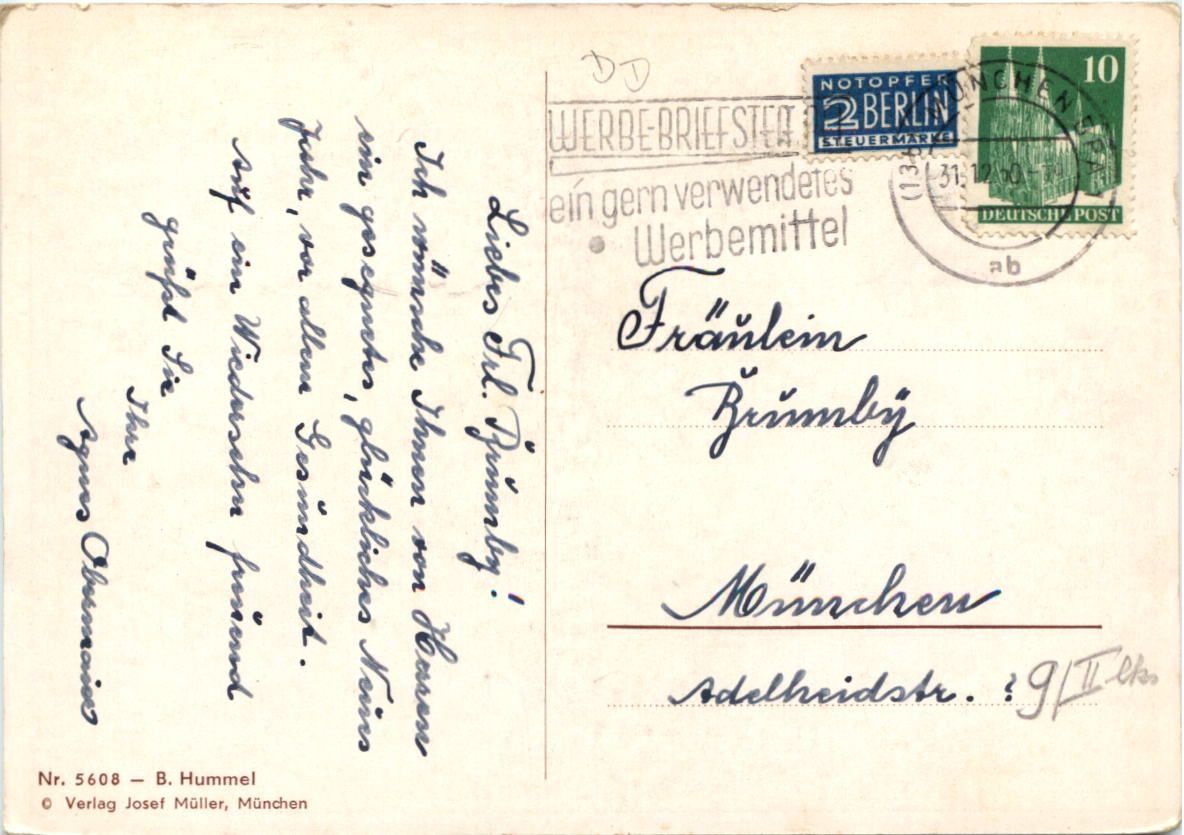 Liebes Frl. Brumby!
Ich wünsche Ihnen von Herzen
ein gesegnetes, glückliches Neues
Jahr, vor allem Gesundheit.
Auf ein Wiedersehn freuend
grüßt Sie
Ihre
Agnes Obermaier
Nr. 5608 — B. Hummel
© Verlag Josef Müller, München
DD
WERBE-BRIEFSTE
ein gern verwendetes
Werbemittel
NOTOPFER
2 BERLIN
STEUERMARKE
10
DEUTSCHE POST
(13 MÜNCHEN
31.12.50
ab
Fräulein
Brumby
München
Adelheidstr. ? 9/II lks